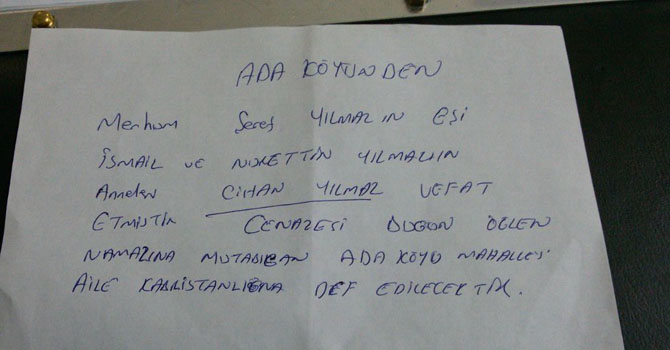 ADA KÖYÜNDEN
Merhum Şeref YILMAZ IN EŞİ
İSMAİL VE NURETTİN YILMAZIN
Anneleri CİHAN YILMAZ VEFAT
ETMİŞTİR CENAZESİ BUGÜN ÖĞLEN
NAMAZINA MUTABIBAN ADA KÖYÜ MAHALLESİ
AİLE KABRİSTANLIĞINA DEF EDİLECEKTİR.